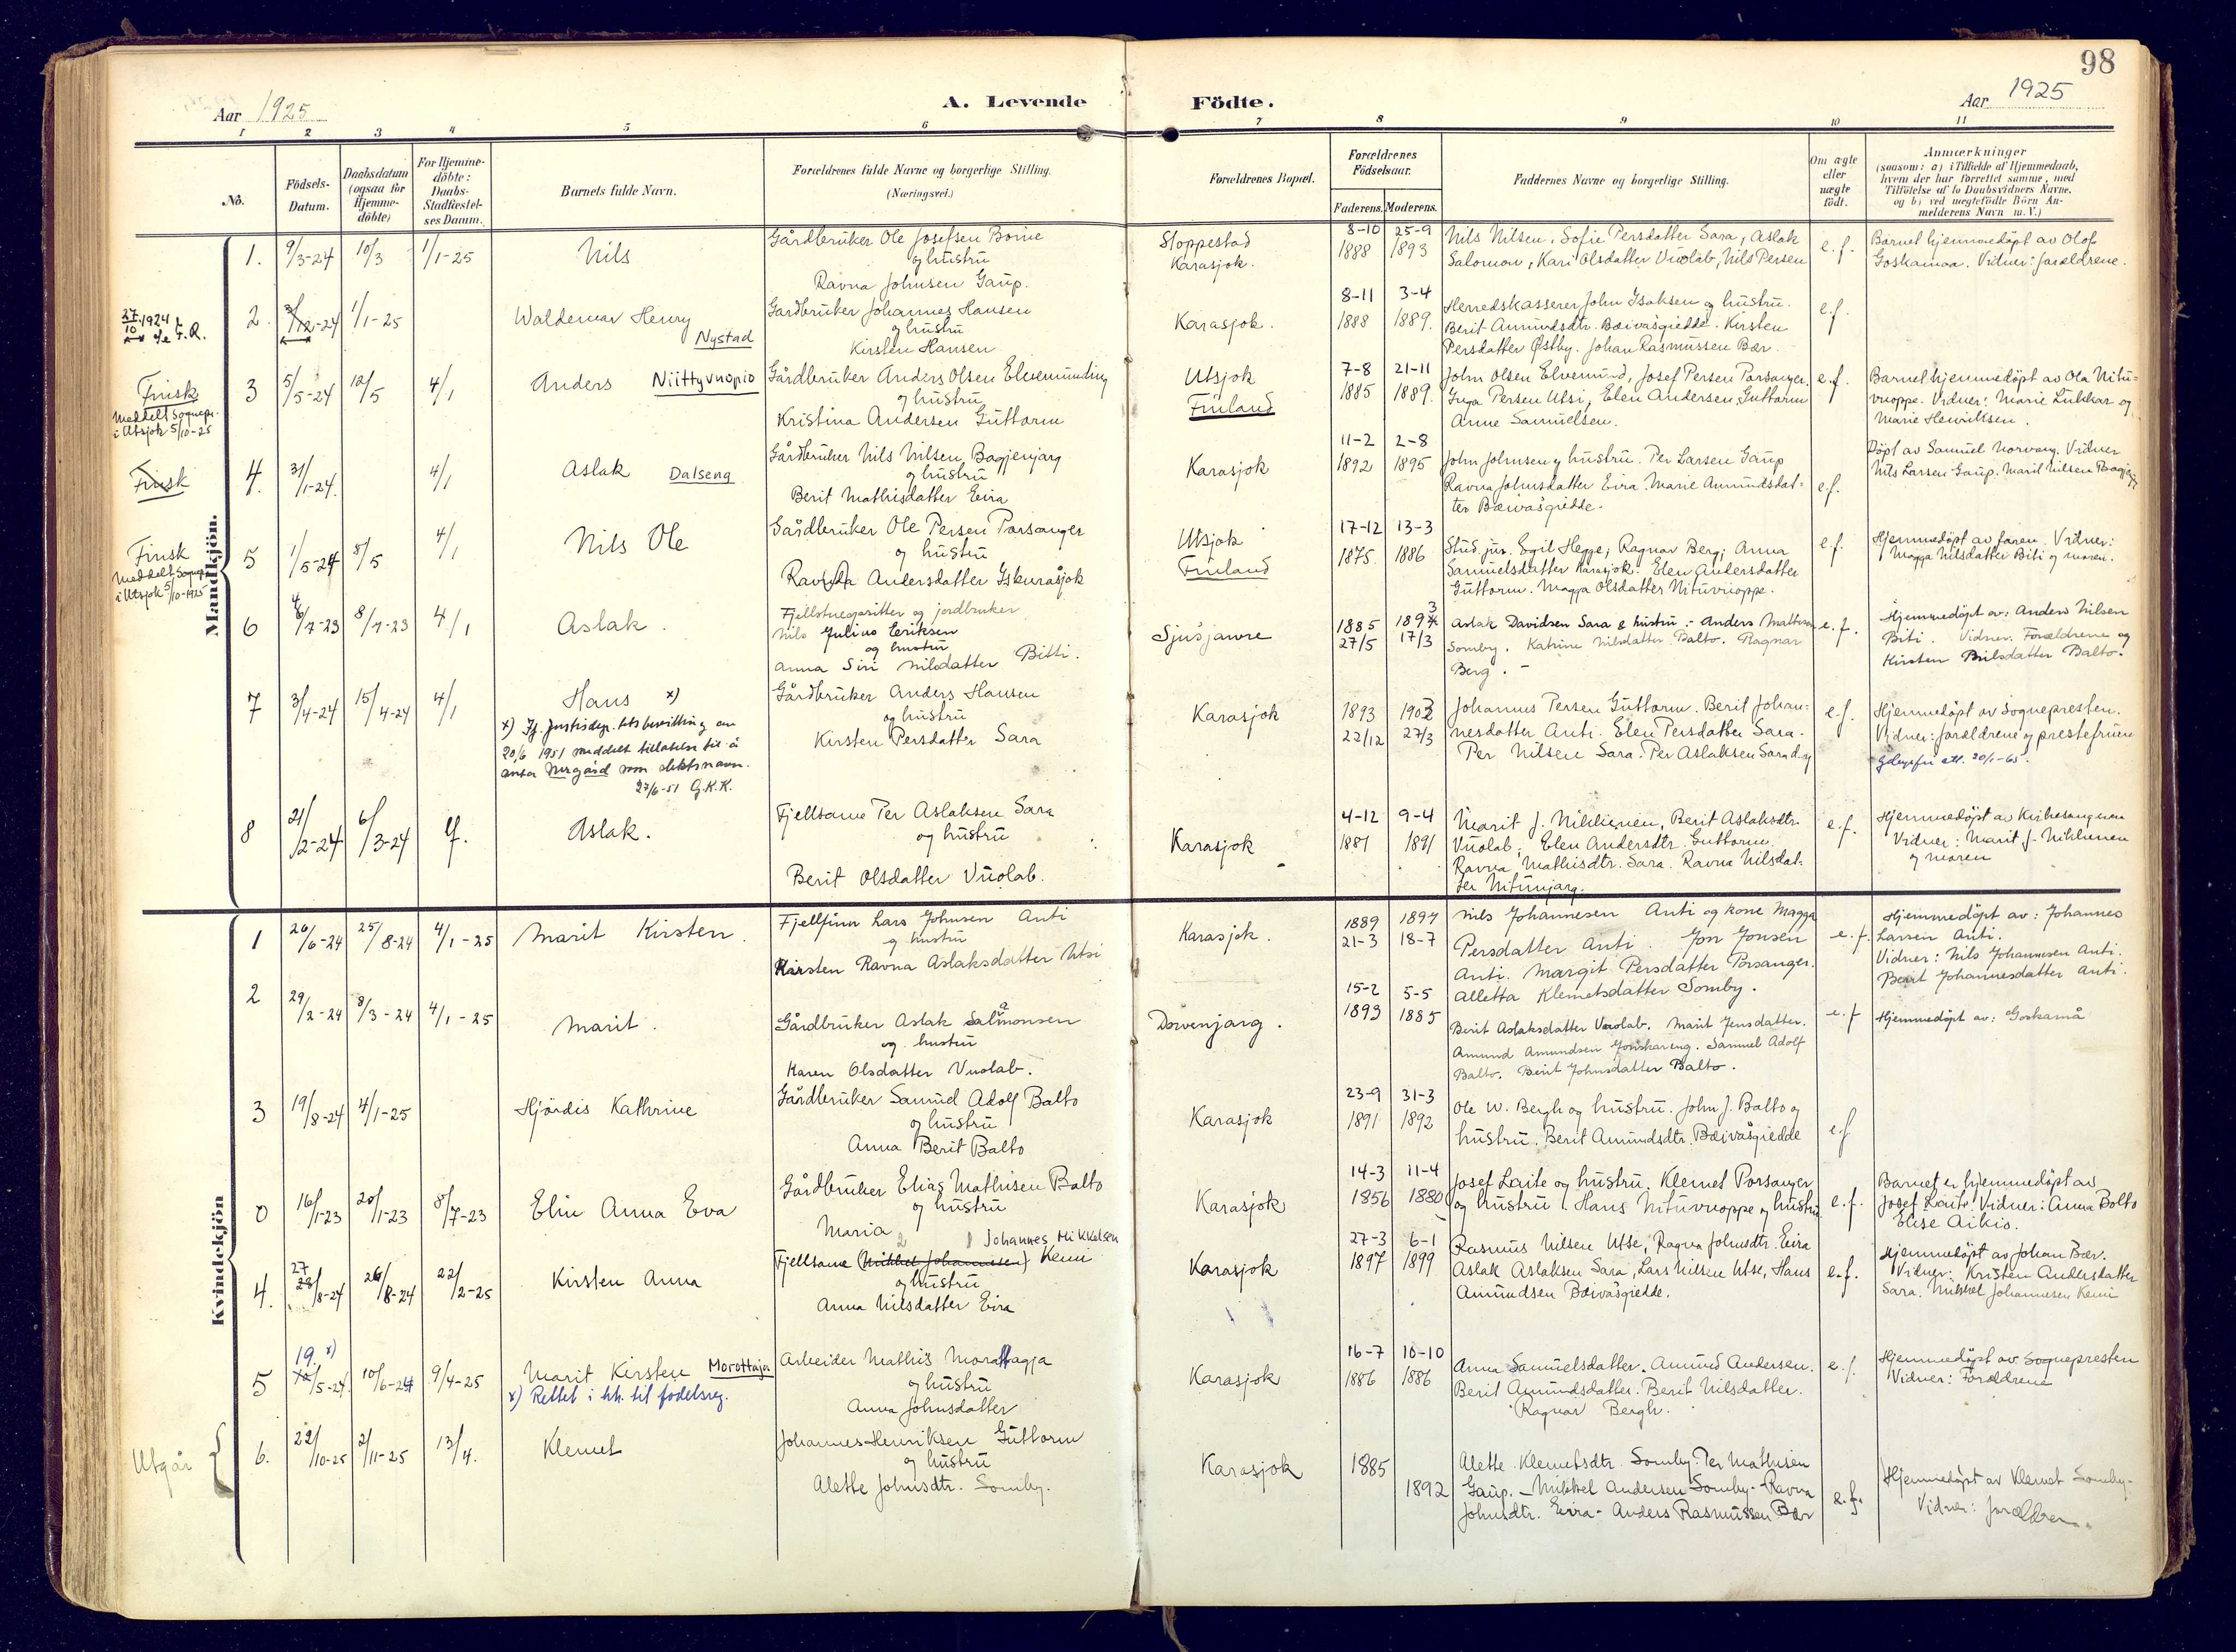 98
Aar 1925
A. Levende Födte.
Aar 1925
1 2 3 4 5 6 7 8 9 10 11
No.
Födsels-
Datum.
Daabsdatum
(ogsaa for
Hjemme-
döbte)
For Hjemme-
döbte:
Daabs-
Stadfæstel-
ses Datum.
Barnets fulde Navn.
Forældrenes fulde Navne og borgerlige Stilling.
(Næringsvei.)
Forældrenes Bopæl.
Forældrenes
Födselsaar.
Faderens. Moderens.
Faddernes Navne og borgerlige Stilling.
Om ægte
eller
uægte
födt.
Anmærkninger
(saasom: a) i Tilfælde af Hjemmedaab,
hvem der har forrettet samme, med
Tilföielse af to Daabsvidners Navne.
og b) ved uægtefödte Börn An-
melderens Navn m. V.)
Mandkjön.
1. 9/3-24 10/3 1/1-25 Nils
Gårdbruker Ole Josefsen Boine
og hustru
Ravna Johnsen Gaup.
Stoppestad
Karasjok.
8-10 25-9
1888 1893
Nils Nilsen, Sofie Persdatter Sara, Aslak
Salomon, Kari Olsdatter Vuolab, Nils Persen
e.f.
Barnet hjemmedøpt av Olof
Goskamoa. Vidner: forældrene.
27/10 1924 F.R.
2. /12-24 1/1-25 Waldemar Henry
Nystad
Gardbruker Johannes Hansen
og hustru
Kirsten Hansen
Karasjok.
8-11 3-4
1888 1889.
Herredskasserer John Isaksen og hustru.
Berit Amundsdtr. Bæivasgiedde. Kirsten
Persdatter Østby. Johan Rasmussen Bær.
e.f.
Finsk
Meddelt Sognepr.
i Utsjok 5/10-25
3 5/5-24 12/5 4/1 Anders Niittyvuopio
Gårdbruker Anders Olsen Elvemunding
og hustru
Kristina Andersen Guttorm
Utsjok
Finland
7-8 21-11
1885 1889.
John Olsen Elvemund, Josef Persen Porsanger.
Inga Persen Utsi, Elen Andersen Guttorm
Anne Samuelsen.
e.f.
Barnet hjemmedøpt av Ola Nitu-
vuoppe. Vidner: Marie Lukkar og
Marie Henriksen.
Finsk
4. 31/1-24. 4/1 Aslak Dalseng
Gårdbruker Nils Nilsen Bagjenjarg
og hustru
Berit Mathisdatter Eira
Karasjok
11-2 2-8
1892 1895
John Johnsen og hustru. Per Larsen Gaup
Ravna Johnsdatter Eira. Marie Amundsdat-
ter Bæivasgiedde.
e.f.
Døpt av Samuel Norvang. Vidner
Nils Larsen Gaup. Marit Nilsen
Finsk
Meddelt Sognepr
i Utsjok 5/10-1925
5 1/5-24 8/5 4/1 Nils Ole
Gårdbruker Ole Persen Porsanger
og hustru
Andersdatter Iskurasjok
Utsjok
Finland
17-12 13-3
1875 1886
Stud. jur. Egil Hegge, Ragnar Berg, Anna
Samuelsdatter Karasjok. Elen Andersdatter
Guttorm. Magga Olsdatter Nituvuoppe.
e.f.
Hjemmedøpt av faren. Vidner:
Magga Nilsdatter Biti og moren.
6 6/7-23 8/7-23 4/1 Aslak.
Fjellstueoppsitter og jordbruker
Nils Julius Eriksen
og hustru
Anna Siri Nilsdatter Bitti.
Sjusjavre
1885 1893
27/5 17/3
Aslak Davidsen Sara & hustru - Anders Mathisen
Somby. Katrine Nilsdatter Balto. Ragnar
Berg. -
e.f.
Hjemmedøpt av: Anders Nilsen
Biti. Vidner: Forældrene og
Kirsten Nilsdatter Balto.
7 3/4-24 15/4-24 4/1 Hans x)
x) Jf. Justisdep.tets bevilling av
20/6 1951 meddelt tillatelse til å
anta Nergård som slektsnavn.
27/6-51 G.K.K.
Gårdbruker Anders Hansen
og hustru
Kirsten Persdatter Sara
Karasjok
1893 1902
22/12 27/3
Johannes Persen Guttorm. Berit Johan-
nesdatter Anti. Elen Persdatter Sara.
Per Nilsen Sara. Per Aslaksen Sara d.y
e.f.
Hjemmedøpt av Sognepresten.
Vidner: forældrene og prestefruen
Gebyrfri att. 20/1-65
8 21/2-24 6/3-24 Aslak.
Fjellsame Per Aslaksen Sara
og hustru
Berit Olsdatter Vuolab.
Karasjok
4-12 9-4
1881 1891
Marit J. Nikkinen, Berit Aslaksdtr.
Vuolab, Elen Andersdtr. Guttorm.
Ravna Mathisdtr. Sara. Ravna Nilsdat-
ter Nitunjarg.
e.f.
Hjemmedøpt av Kirkesangeren
Vidner: Marit J. Nikkinen
og moren
Kvindekjön
1 26/6-24 25/8-24 4/1-25 Marit Kirsten.
Fjellfinn Lars Johnsen Anti
og hustru
Kirsten Ravna Aslaksdatter Utsi
Karasjok.
1889 1897
21-3 18-7
Nils Johannesen Anti og kone Magga
Persdatter Anti. Jon Jonsen
Anti. Margit Persdatter Porsanger.
Alletta Klemetsdatter Somby.
e.f.
Hjemmedøpt av: Johannes
Larsen Anti.
Vidner: Nils Johannesen Anti.
Berit Johannesdatter Anti.
2 29/2-24 8/3-24 4/1-25 Marit.
Gårdbruker Aslak Salamonsen
og hustru
Karen Olsdatter Vuolab.
Dorvenjarg.
15-2 5-5
1893 1885
Berit Aslaksdatter Vuolab. Marit Jensdatter.
Amund Amundsen Joniskareng. Samuel Adolf
Balto. Berit Johnsdatter Balto.
e.f
Hjemmedøpt av: Goskamå
3 19/8-24 4/1-25 Hjördis Kathrine
Gårdbruker Samuel Adolf Balto
og hustru
Anna Berit Balto
Karasjok
23-9 31-3
1891 1892
Ole W. Bergh og hustru. John J. Balto og
hustru. Berit Amundsdtr. Bæivåsgiedde
e.f
0 16/1-23 20/1-23 8/7-23 Elin Anna Eva
Gårdbruker Elias Mathisen Balto
og hustru
Maria
Karasjok
14-3 11-4
1856 1880
Josef Laite og hustru. Klemet Porsanger
og hustru. Hans Nituvuoppe og hustru
e.f.
Barnet er hjemmedøpt av
Josef Laite. Vidner: Anna Balto
Elise Aikio.
4. 27/8-24 26/8-24 22/2-25 Kirsten Anna
Johannes Mikkelsen
Fjellsame (Mikkel Johannesen) Kemi
og hustru
Anna Nilsdatter Eira
Karasjok
27-3 6-1
1897 1899
Rasmus Nilsen Utse, Ragna Johnsdtr. Eira
Aslak Aslaksen Sara, Lars Nilsen Utse, Hans
Amundsen Bæivasgiedde.
e.f.
Hjemmedøpt av Johan Bær.
Vidner: Kristen Andersdatter
Sara. Mikkel Johannesen Kemi
5 19. x)/5-24. 10/6-24 9/4-25 Marit Kirsten Morottaja
x) Rettet i hh. til fødselsreg.
Arbeider Mathis
og hustru
Anna Johnsdatter
Karasjok
16-7 10-10
1886 1886
Anna Samuelsdatter. Amund Andersen.
Berit Amundsdatter. Berit Nilsdatter.
Ragnar Bergh.
e.f.
Hjemmedøpt av Sognepresten
Vidner: Forældrene
Utgår
6. 22/10-25 2/11-25 13/4. Klemet
Johannes Henriksen Guttorm
og hustru
Alette Johnsdtr. Somby.
Karasjok
1885
1892
Alette Klemetsdtr. Somby. Per Mathisen
Gaup. - Mikkel Andersen Somby - Ravna
Johnsdtr. Eira - Anders Rasmussen Bær
e.f.
Hjemmedøpt av Klemet Somby-
Vidner: forældrene.